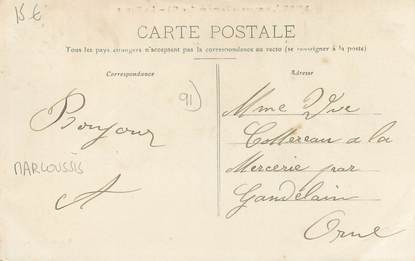 15 €
CARTE POSTALE
Tous les pays étrangers n'acceptent pas la correspondance au recto (se renseigner à la poste)
Correspondance
Adresse
91)
Bonjour
MARCOUSSIS
A
Mme Vve
Collereau a la
Mercerie par
Gandelain
Orne